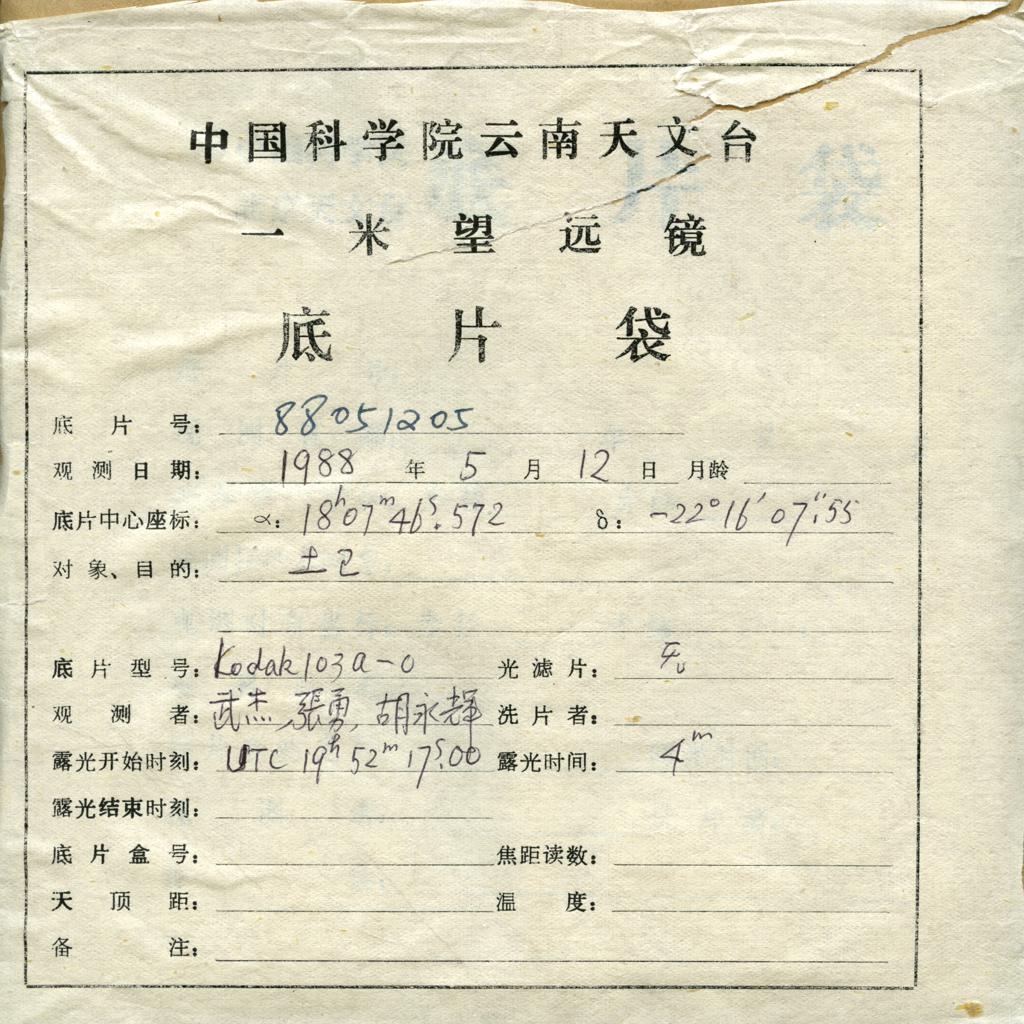 中国科学院云南天文台
一米望远镜
底片袋
底片号: 88051205
观测日期: 1988 年 5 月 12 日 月龄
底片中心座标: α: 18ʰ07ᵐ46ˢ.572 δ: -22°16′07″.55
对象、目的: 土卫
底片型号: Kodak 103a-O 光滤片: 无
观测者: 武杰、張勇、胡永輝 洗片者:
露光开始时刻: UTC 19ʰ52ᵐ17ˢ.00 露光时间: 4ᵐ
露光结束时刻:
底片盒号: 焦距读数:
天顶距: 温度:
备注: